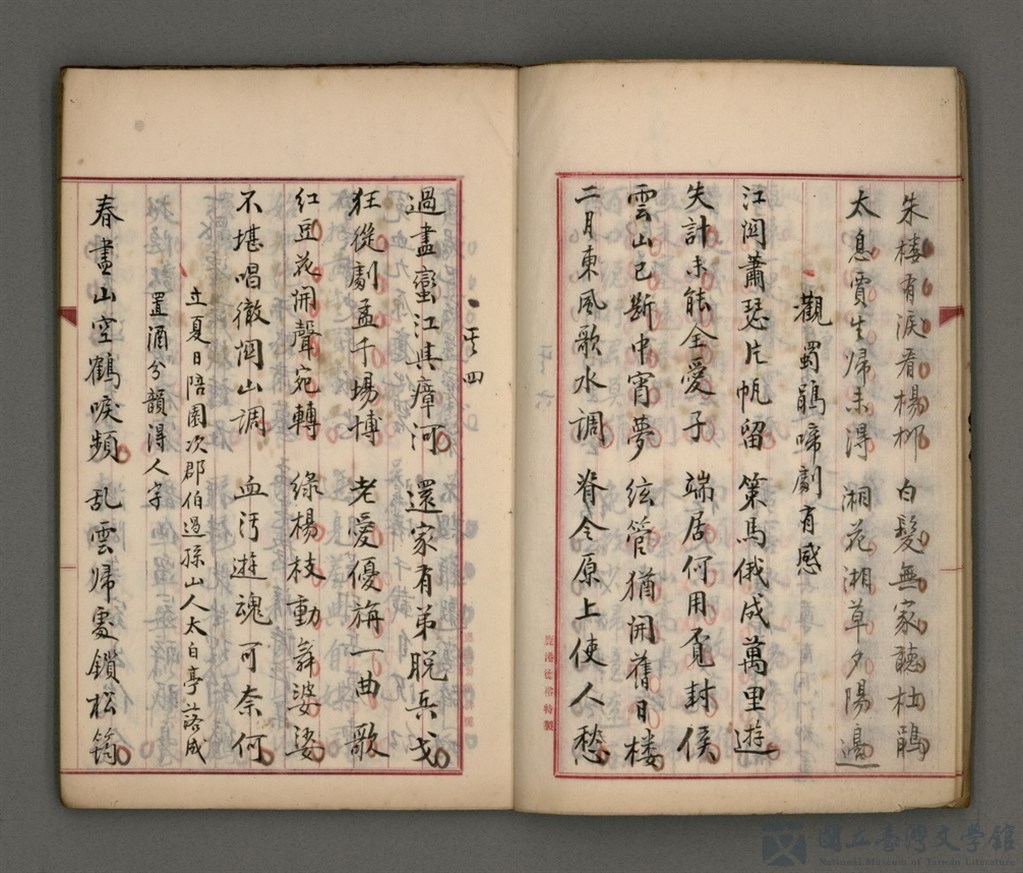 朱楼有淚看楊柳　白髮無家聽杜鵑
太息賈生帰未得　湘花湘草夕陽邊
觀蜀鵑啼劇有感
江関蕭瑟片帆留　策馬俄成萬里遊
失計未能全愛子　端居何用覔封侯
雲山已斷中宵夢　絃管猶開舊日楼
二月東風歌水調　脊令原上使人愁
其四
過盡蠻江與瘴河　還家有弟脱兵戈
狂從劇孟千場博　老愛優旃一曲歌
紅豆花開聲宛轉　綠楊枝動舞婆娑
不堪唱徹関山調　血汚遊魂可奈何
立夏日陪園次郡伯過孫山人太白亭落成
置酒分韻得人字
春盡山空鶴唳頻　乱雲帰處鎖松筠
鹿港德裕特製
國立臺灣文學館
National Museum of Taiwan Literature